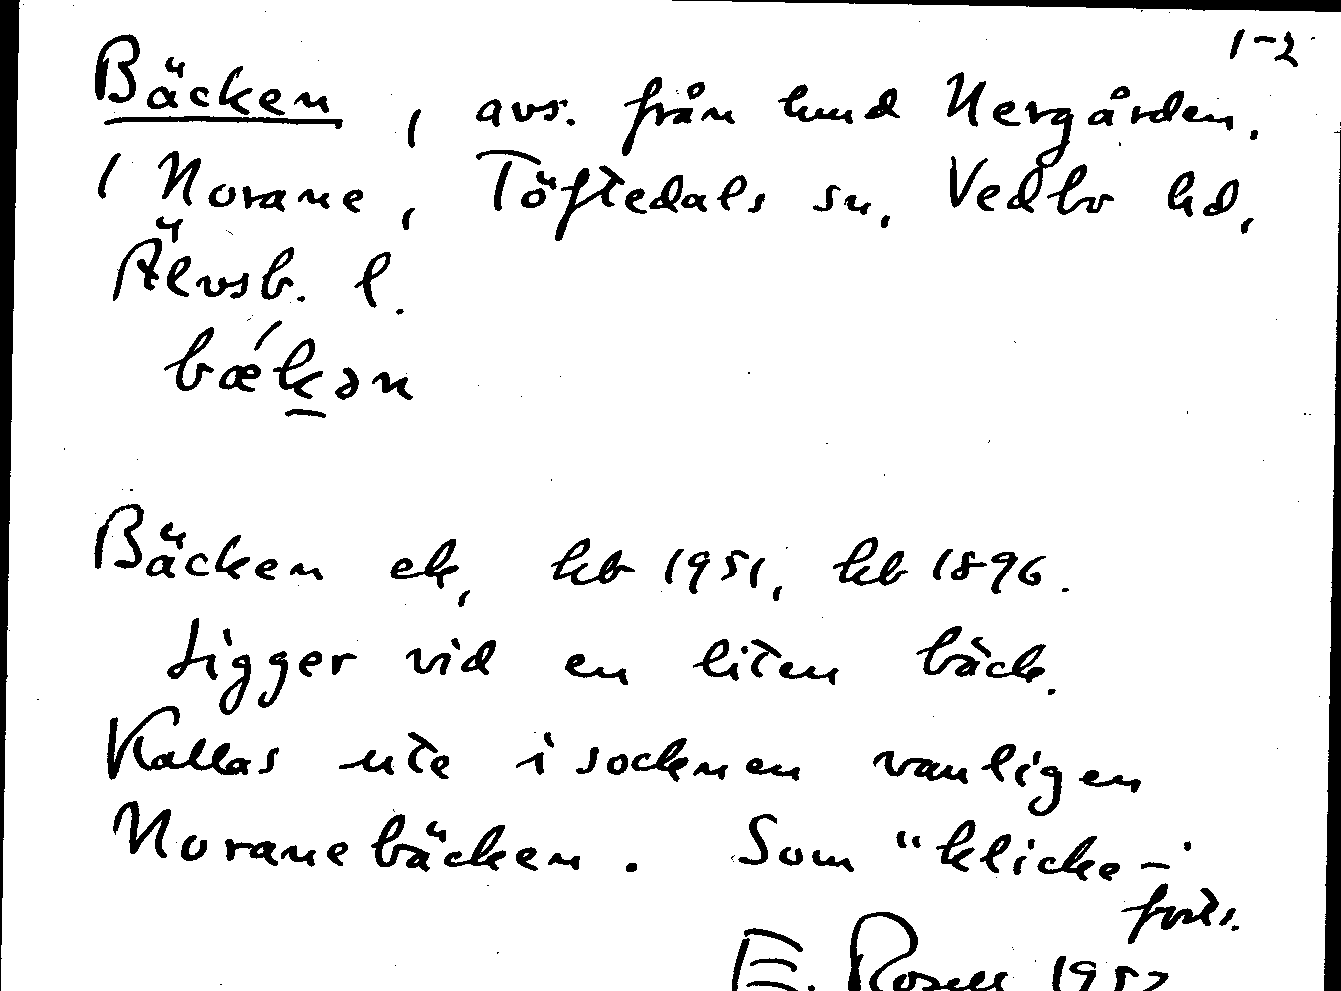 1-2
Bäcken, avs. från hmd Nergården,
1 Norane, Töftedals sn, Vedbo hd,
Älvsb. l.
bǽk̲ən
Bäcken ek, kb 1951, kb 1896.
Ligger vid en liten bäck.
Kallas ute i socknen vanligen
Noranebäcken. Som "klicke-
forts.
E. Rosell 1952